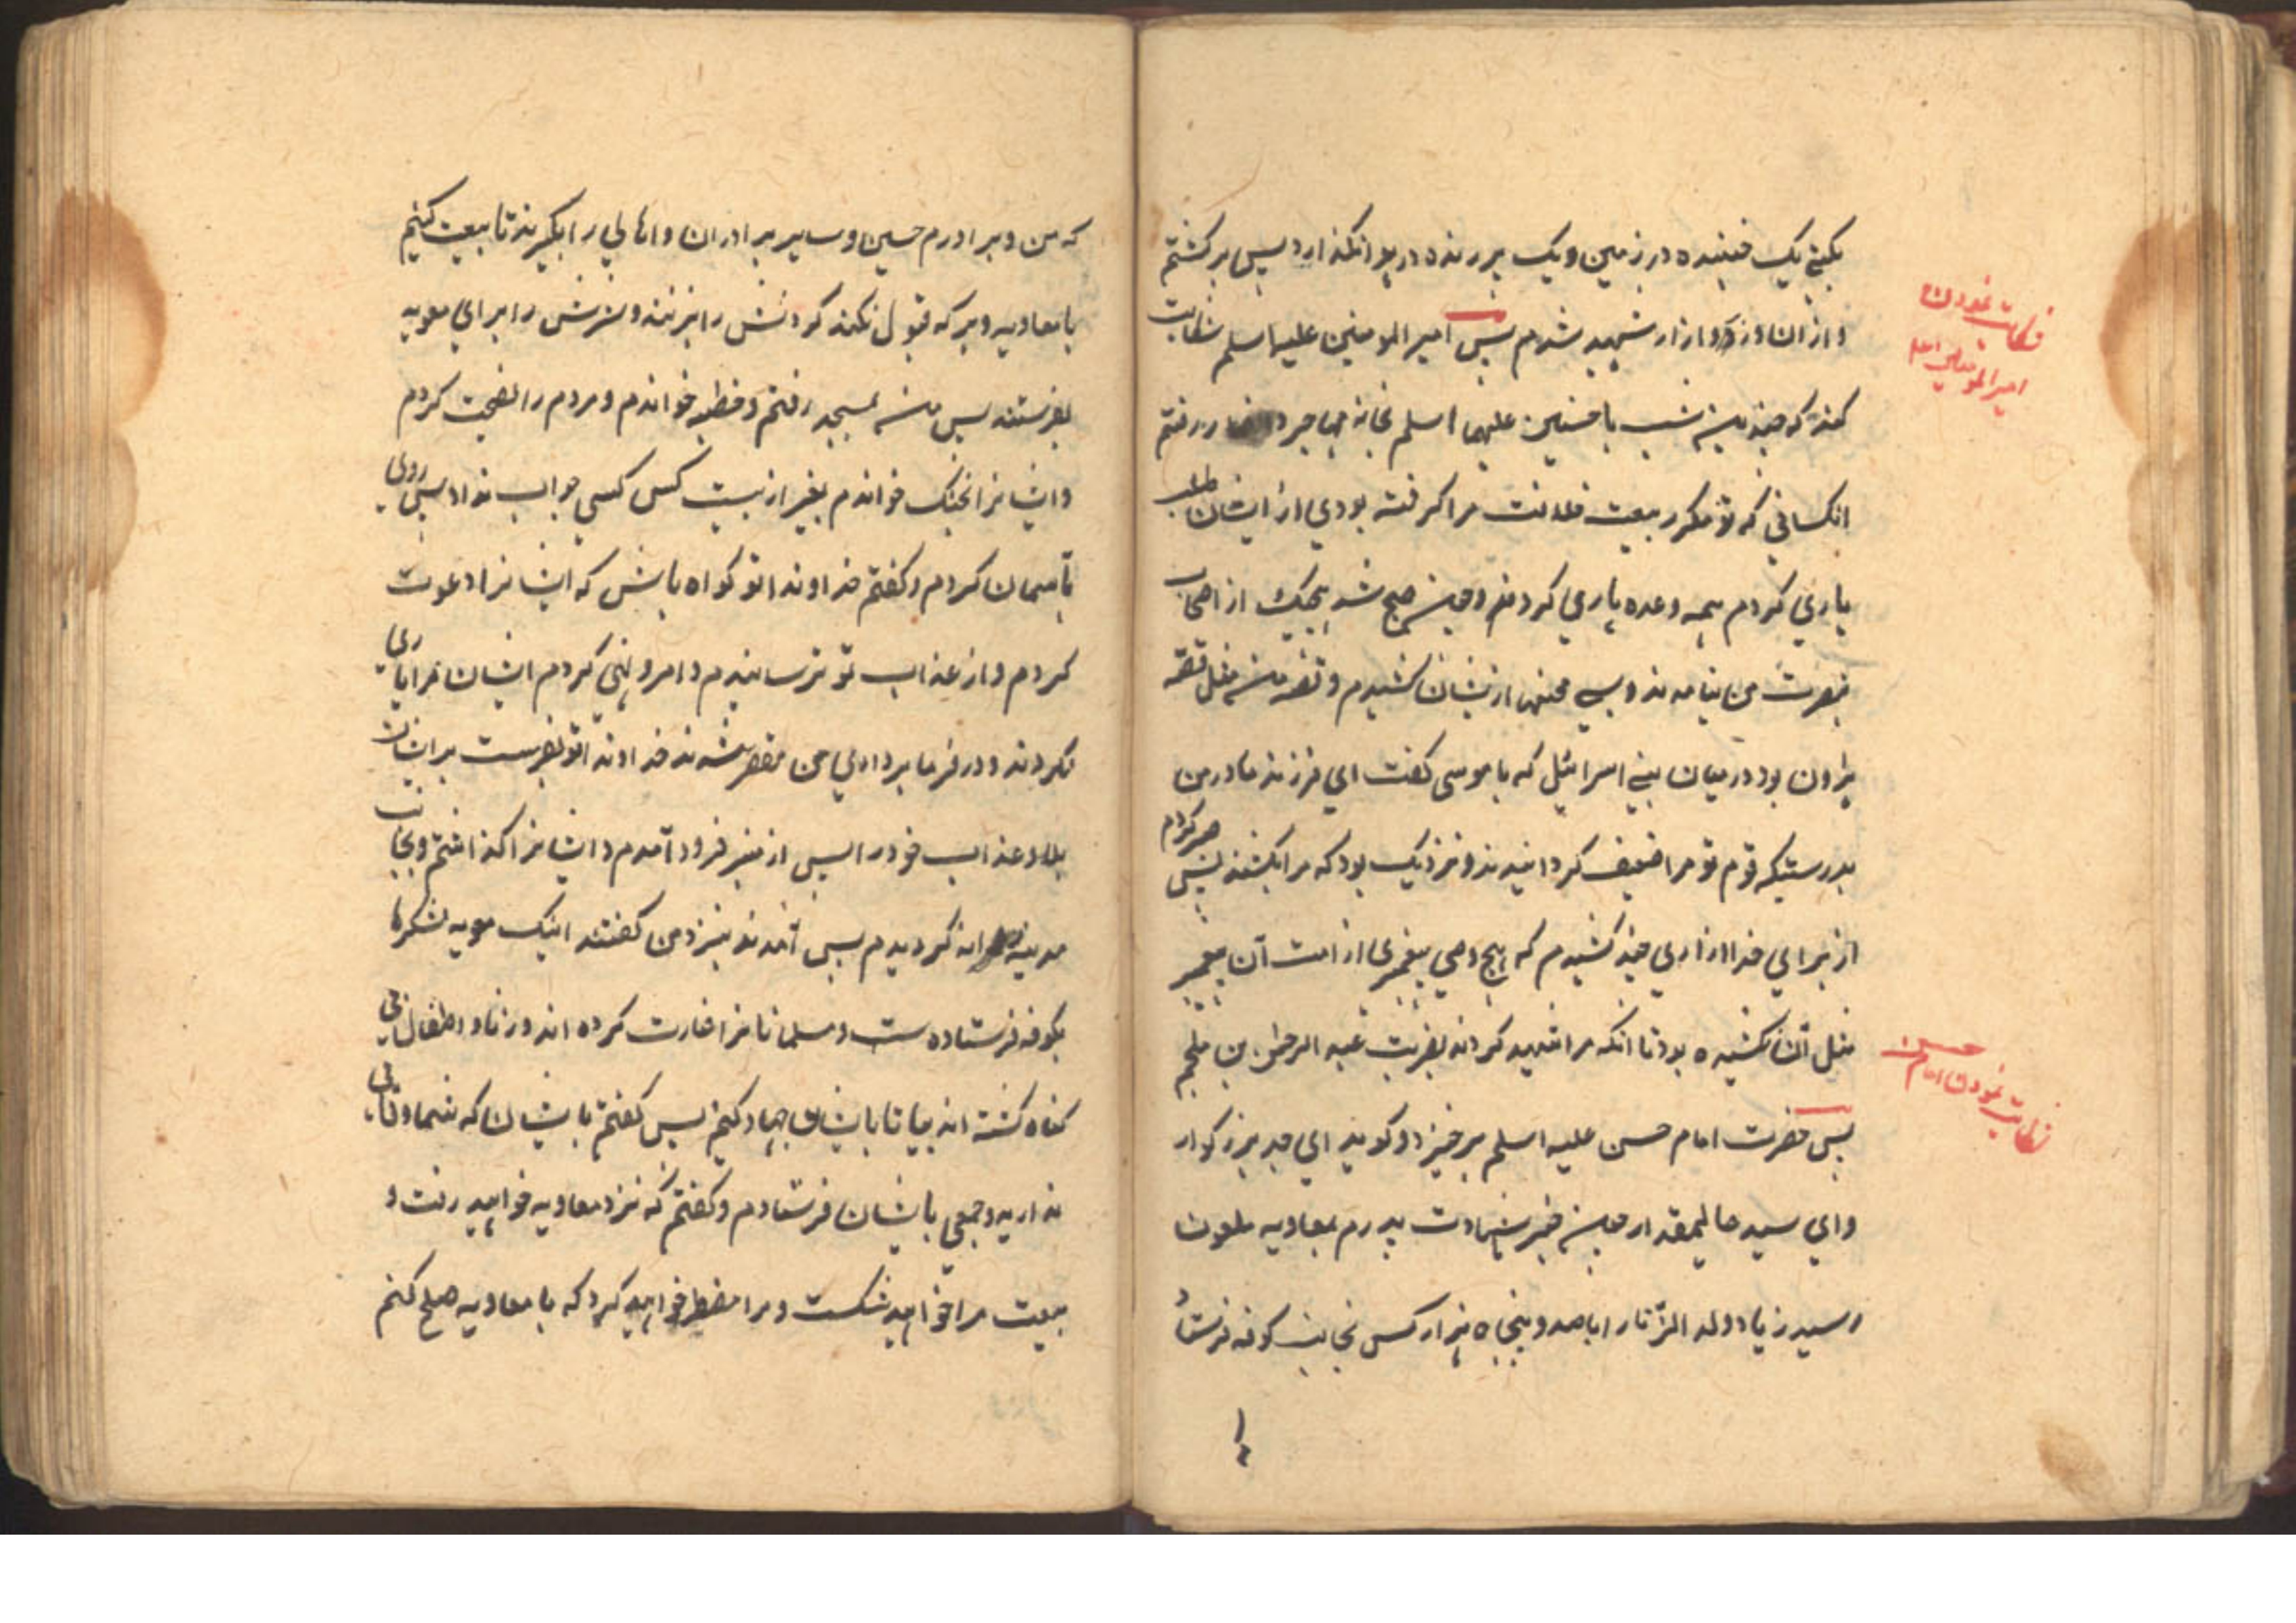 بکنی یک جنبنده در زمین و یک پرنده در هوا نگذارد پس برگشتم
و از ان درد و ازار شهید شدم پس امیر المومنین علیه اسلم شکایت
شکایت نمودن
امیر المومنین اسلم
کند که چندین شب با حسنین علیهما اسلم بخانه مهاجر و رفتم
انکسانی که تو مکرر بیعت خلافت مرا گرفته بودی از ایشان طلب
یاری کردم همه وعده یاری کردند و چون صبح شد هیچیک از اصحاب
بنصرت من نیامدند و بسی محنتها از یشان کشیدم و قصه من مثل قصه
هرون بود در میان بنی اسرائیل که با موسی کفت ای فرزند مادر من
بدرستیکه قوم تو مرا ضعیف کردانیدند و نزدیک بود که مرا بکشند پس صبر کردم
از برای خدا ازاری چند کشیدم که هیچ وصی پیغمبری از امت آن پیغمبر
مثل آن نکشیده بود تا انکه مرا شهید کردند بضربت عبد الرحمن بن ملجم
شکایت نمودن امام حسن
پس حضرت امام حسن علیه اسلم برخیزد و کوید ای جد بزرکوار
و ای سید عالیمقدار چون خبر شهادت پدرم بمعاویه ملعون
رسید زیاد ولد الزنا را با صد و پنجاه هزار کس بجانب کوفه فرستاد
که من و برادرم حسین و سایر برادران و اهالی را بکیرند تا بیعت کنیم
با معاویه و هر که قبول نکند کردنش را بزنند و سرش را برای معویه
بفرستند پس من بمسجد رفتم و خطبه خواندم و مردم را نصیحت کردم
و ایشانرا بجنک خواندم بغیر از بیست کس کسی جواب نداد پس روی
بآسمان کردم و کفتم خداوندا تو کواه باش که ایشانرا دعوت
کردم و از عذاب تو ترسانیدم و امر و نهی کردم ایشان مرا یاری
نکردند و در فرمابرداری من مقصر شدند خداوندا تو بفرست بر ایشان
بلا و عذاب خود را پس از منبر فرود آمدم و ایشانرا کذاشتم و بجانب
مدینه روانه کردیدم پس آمدند بنزد من کفتند اینک معویه لشکرها
بکوفه فرستاده ست و مسلمانانرا غارت کرده اند و زنان و اطفال بی
کناه کشته اند بیا تا با ایشان جهاد کنیم پس کفتم با یشان که شما وفائی
ندارید و جمعی با یشان فرستادم و کفتم که نزد معاویه خواهید رفت و
بیعت مرا خواهید شکست و مرا مضطر خواهید کرد که با معاویه صلح کنم